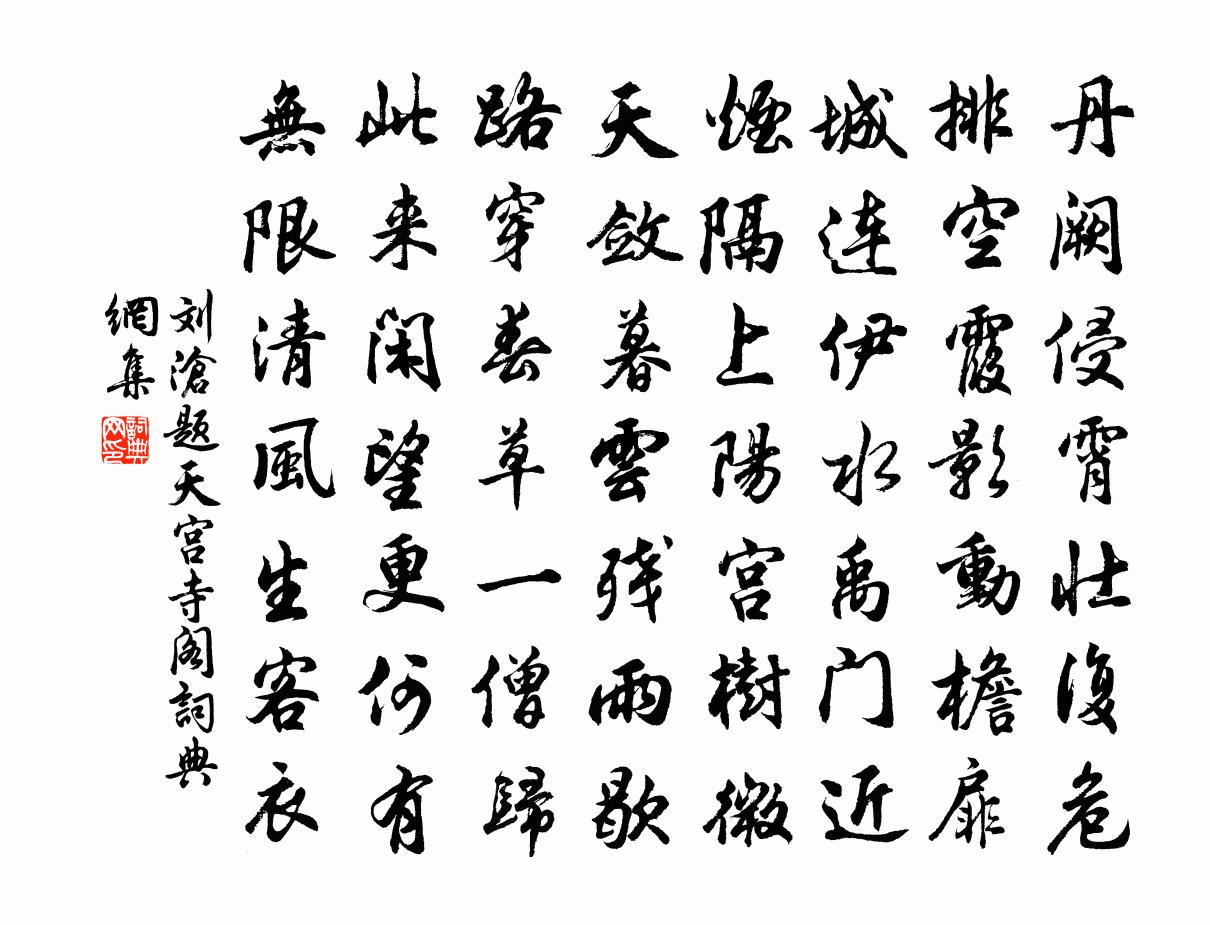 丹阙侵霄壮復危
排空霞影動檐扉
城连伊水禹门近
煙隔上陽宮樹微
天斂暮雲残雨歇
路穿春草一僧歸
此来闲望更何有
無限清風生客衣
刘滄题天宫寺阁詞典
網集
詞典
网印